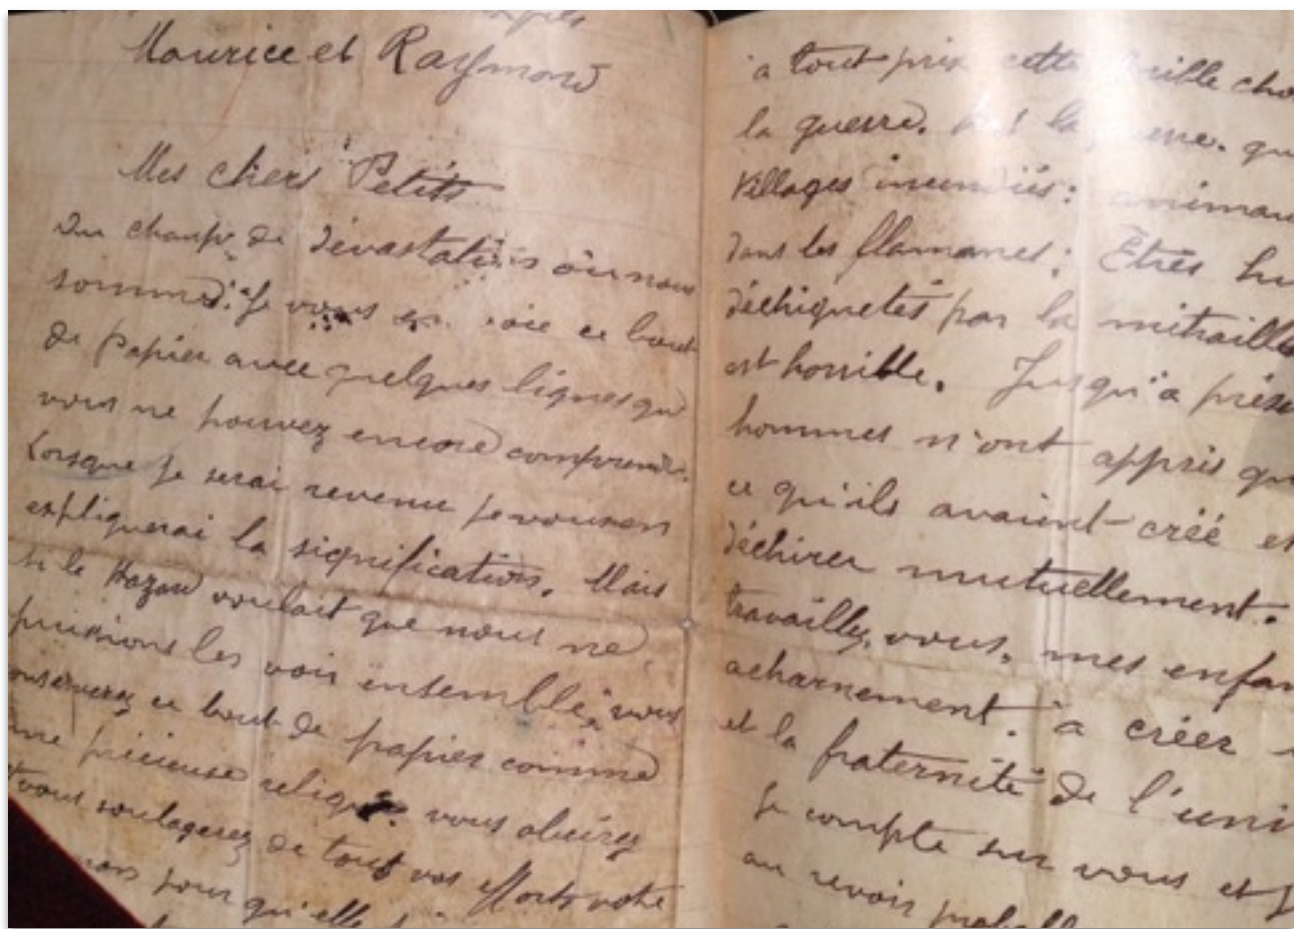 Maurice et Raymond
Mes chers Petits
Du champ de dévastations où nous
sommes. Je vous ce bout
de Papier avec quelques lignes que
vous ne pouvez encore comprendre.
Lorsque je serai revenu je vous en
expliquerai la signification. Mais
si le Hazard voulait que nous ne
puissions les voir ensemble, vous
conserverez ce bout de papier comme
une précieuse relique. vous obéirez
soulagerez de tout vos efforts votre
pour qu'elle
à tout prix cette
la guerre. la guerre. qu
villages incendiés: animau
dans les flammes; Êtres hu
déchiquetés par la mitraille
est horrible. Jusqu'à prése
hommes n'ont appris qu
ce qu'ils avaient créé et
déchirer mutuellement.
travaillez, vous, mes enfan
acharnement. à créer
et la fraternité de l'uni
Je compte sur vous et
au revoir